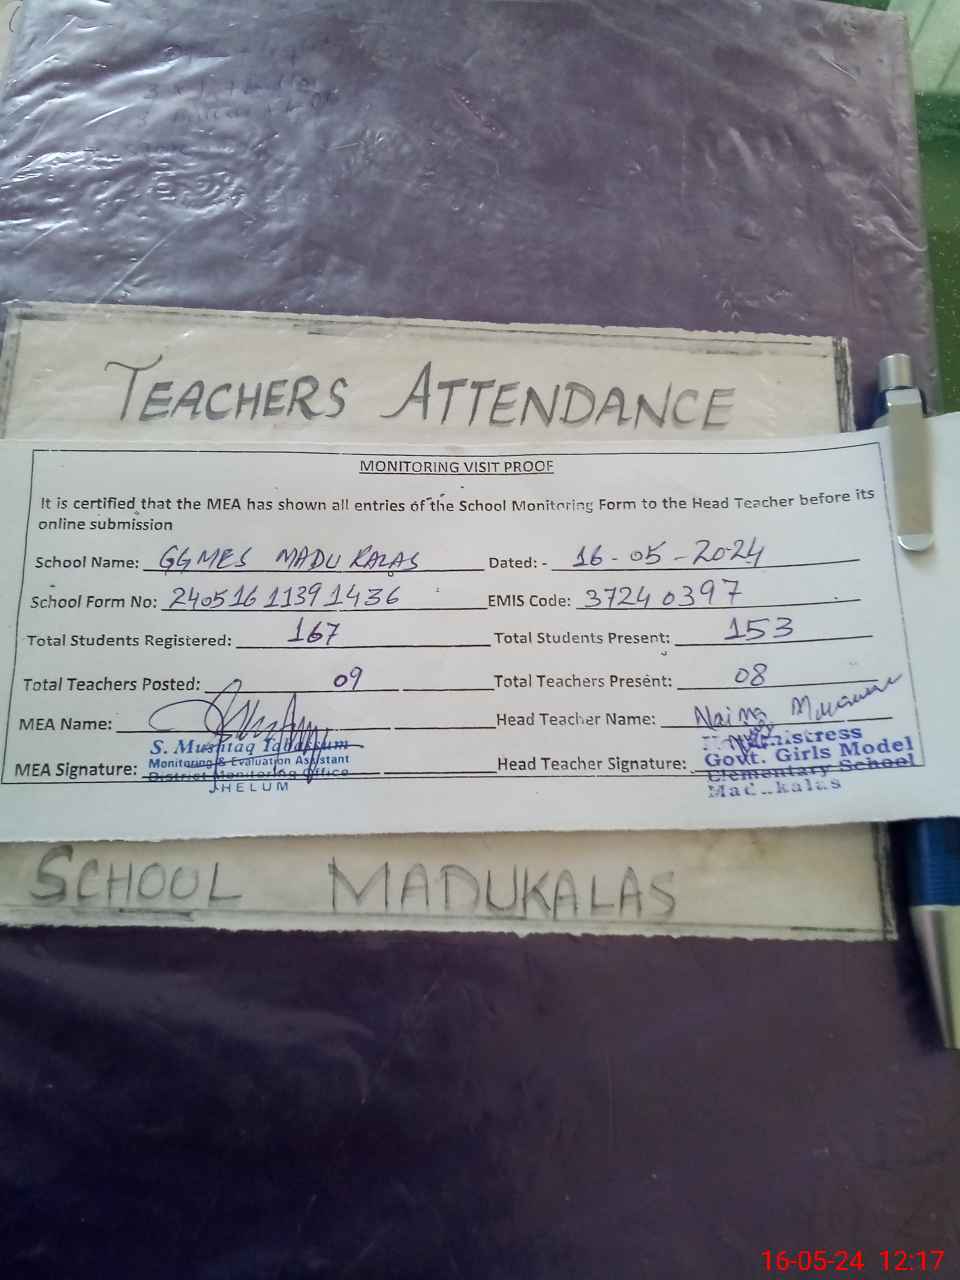 TEACHERS ATTENDANCE
MONITORING VISIT PROOF
It is certified that the MEA has shown all entries of the School Monitoring Form to the Head Teacher before its
online submission
School Name: GGMES MADUKALAS Dated: - 16-05-2024
School Form No: 2405161139 1436 EMIS Code: 37240397
Total Students Registered: 167 Total Students Present: 153
Total Teachers Posted: 09 Total Teachers Present: 08
MEA Name: Head Teacher Name: Naima
S. Mushtaq Tabassum
Monitoring & Evaluation Assistant
District Monitoring Office
JHELUM
MEA Signature: Head Teacher Signature:
Headmistress
Govt. Girls Model
Elementary School
Madukalas
SCHOOL MADUKALAS
16-05-24 12:17